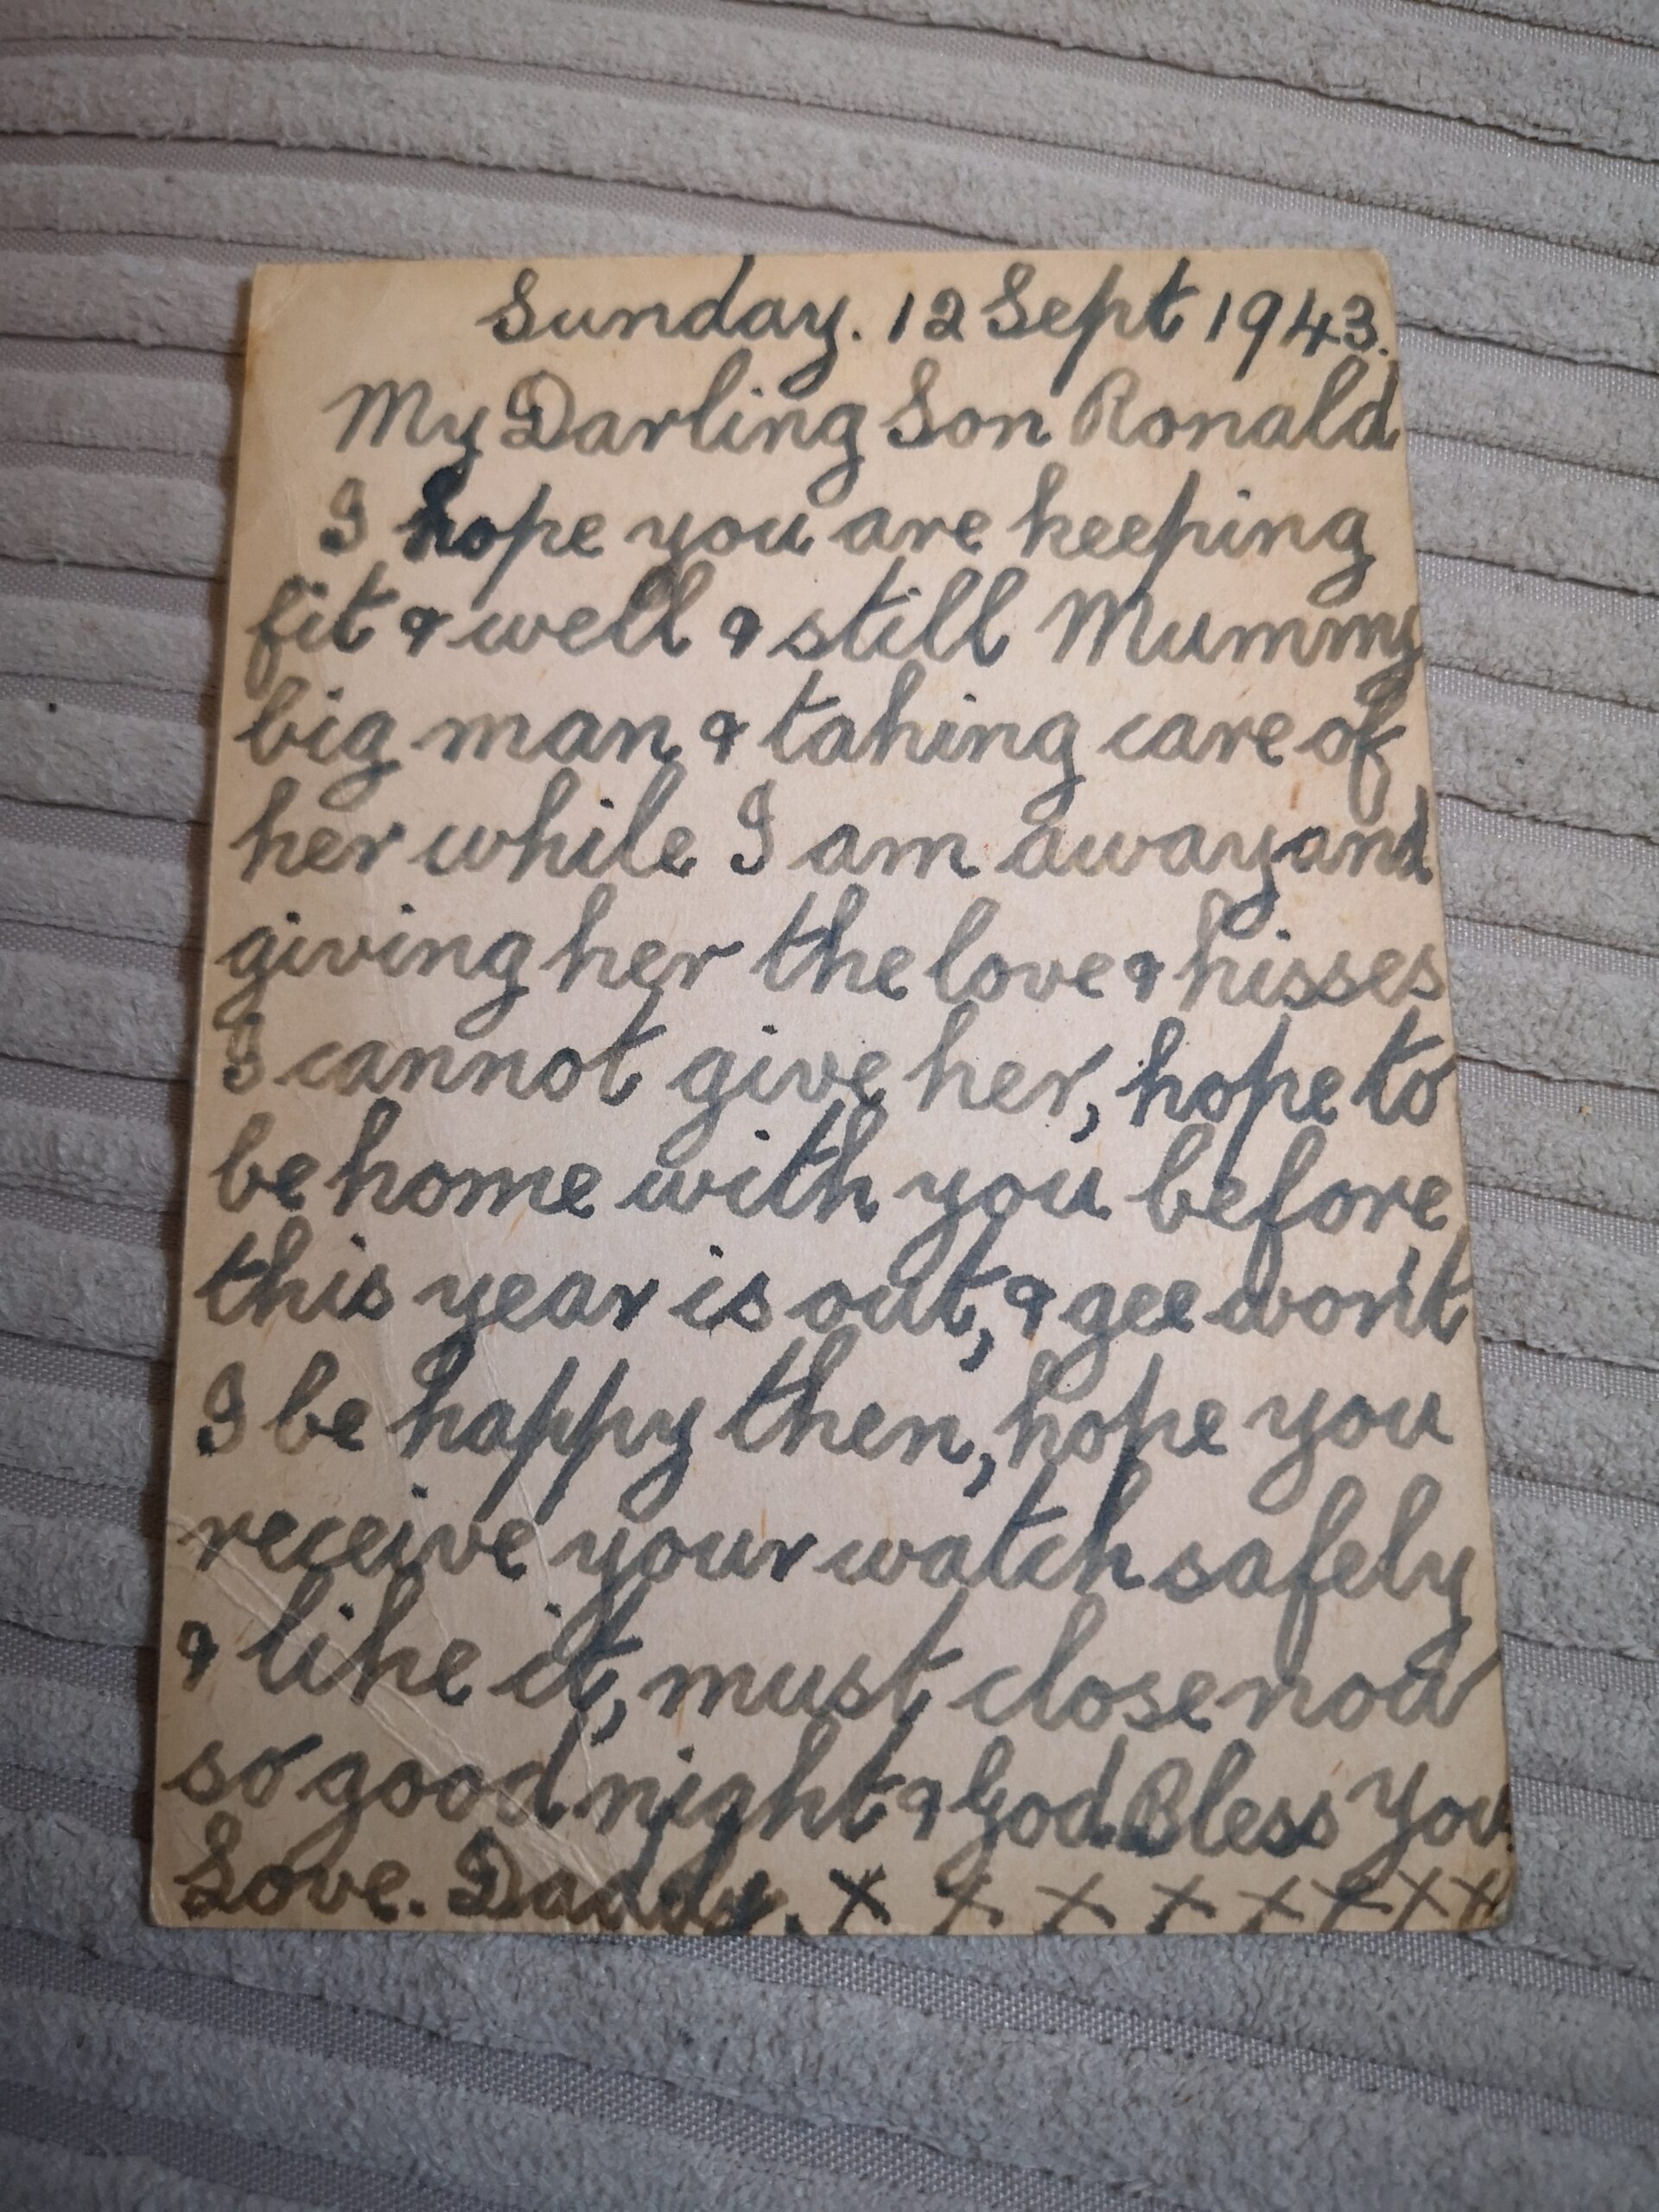 Sunday. 12 Sept 1943.
My Darling Son Ronald
I hope you are keeping
fit & well & still Mummy
big man & taking care of
her while I am away and
giving her the love & kisses
I cannot give her, hope to
be home with you before
this year is out, & gee won't
I be happy then, hope you
receive your watch safely
& like it, must close now
so good night & God Bless You
Love. Daddy. x x x x x x x x